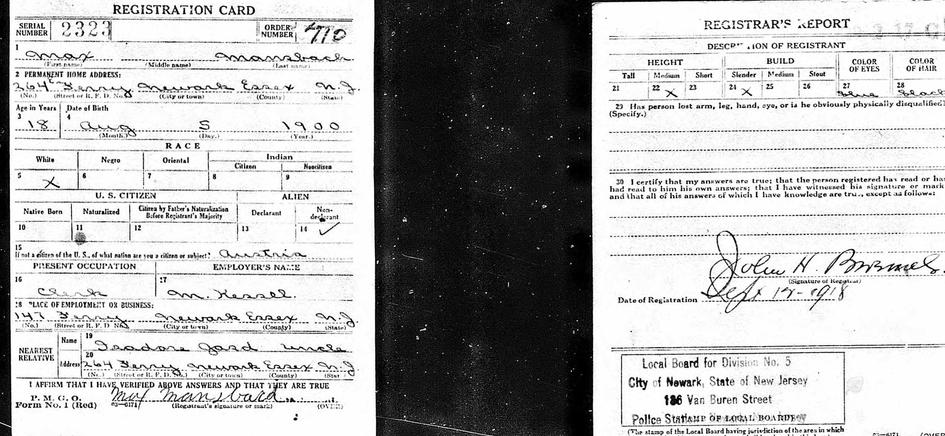 REGISTRATION CARD
SERIAL NUMBER 2323 ORDER NUMBER 4710
1 Max Mansbach
(First name) (Middle name) (Last name)
2 PERMANENT HOME ADDRESS:
264 Ferry Newark Essex N.J
(No.) (Street or R. F. D. No.) (City or town) (County) (State)
Age in Years Date of Birth
3 18 4 Aug 5 1900
(Month.) (Day.) (Year.)
RACE
White Negro Oriental Indian
Citizen Noncitizen
5 X 6 7 8 9
U. S. CITIZEN ALIEN
Native Born Naturalized Citizen by Father's Naturalization Before Registrant's Majority Declarant Non-declarant
10 11 12 13 14 ✓
15
If not a citizen of the U. S., of what nation are you a citizen or subject? Austria
PRESENT OCCUPATION EMPLOYER'S NAME
16 Clerk 17 M. Kessel.
18 PLACE OF EMPLOYMENT OR BUSINESS:
147 Ferry Newark Essex N.J
(No.) (Street or R. F. D. No.) (City or town) (County) (State)
NEAREST RELATIVE
Name 19 Isadore uncle
Address 20 264 Ferry Newark Essex N.J
(No.) (Street or R. F. D. No.) (City or town) (County) (State
I AFFIRM THAT I HAVE VERIFIED ABOVE ANSWERS AND THAT THEY ARE TRUE
P. M. G. O.
Form No. 1 (Red) 03—6171 Max (Registrant's signature or mark) (OVER)
REGISTRAR'S REPORT
DESCRIPTION OF REGISTRANT
HEIGHT BUILD COLOR OF EYES COLOR OF HAIR
Tall Medium Short Slender Medium Stout
21 22 X 23 24 X 25 26 27 Blue 28 Black
29 Has person lost arm, leg, hand, eye, or is he obviously physically disqualified?
(Specify.)
30 I certify that my answers are true; that the person registered has read or has
had read to him his own answers; that I have witnessed his signature or mark
and that all of his answers of which I have knowledge are true, except as follows:
John H.
(Signature of Registrar)
Date of Registration Sept 12-1918
Local Board for Division No. 5
City of Newark, State of New Jersey
186 Van Buren Street
Police Station
STAMP OF LOCAL BOARD
(The stamp of the Local Board having jurisdiction of the area in which
03—6171 (OVER